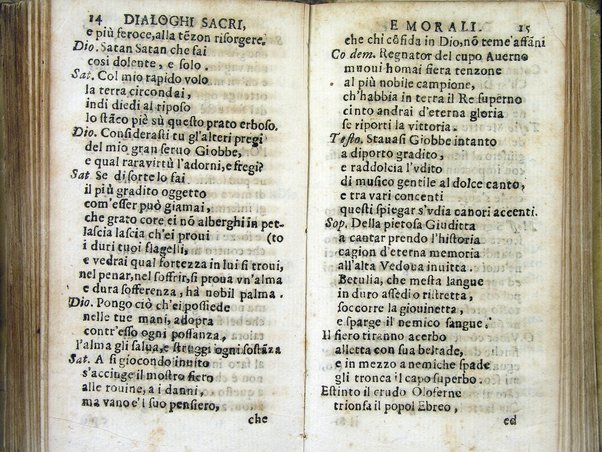 14 DIALOGHI SACRI,
e più feroce, alla tēzon risorgere.
Dio. Satan Satan che fai
cosi dolente, e solo.
Sat. Col mio rapido volo
la terra circondai,
indi diedi al riposo
lo stāco piè sù questo prato erboso.
Dio. Considerasti tu gl'alteri pregi
del mio gran seruo Giobbe,
e qual rara virtù l'adorni, e fregi?
Sat Se di sorte lo fai
il più gradito oggetto
com'esser può giamai,
che grato core ei nō alberghi in pet-
lascia lascia ch'ei proui (to
i duri tuoi flagelli,
e vedrai qual fortezza in lui si troui,
nel penar, nel soffrir, si proua vn'alma
e dura sofferenza, hà nobil palma.
Dio. Pongo ciò ch'ei possiede
nelle tue mani, adopra
contr'esso ogni possanza,
l'alma gli salua, e struggi ogni sostāza
Sat. A sì giocondo inuito
s'accinge il mostro fiero
alle rouine, a i danni,
ma vano e'l suo pensiero,
che
E MORALI. 15
che chi cōfida in Dio, nō teme' affāni
Co dem. Regnator del cupo Auerno
muoui homai fiera tenzone
al più nobile campione,
ch'habbia in terra il Re superno
cinto andrai d'eterna gloria
se riporti la vittoria.
Testo. Stauasi Giobbe intanto
a diporto gradito,
e raddolcia l'vdito
di musico gentile al dolce canto,
e tra vari concenti
questi spiegar s'vdia canori accenti.
Sop. Della pietosa Giuditta
a cantar prendo l'historia
cagion d'eterna memoria
all'alta Vedoua inuitta.
Betulia, che mesta langue
in duro assedio ristretta,
soccorre la giouinetta,
e sparge il nemico sangue.
Il fiero tiranno acerbo
alletta con sua beltade,
e in mezzo a nemiche spade
gli tronca il capo superbo.
Estinto il crudo Oloferne
trionfa il popol Ebreo,
ed